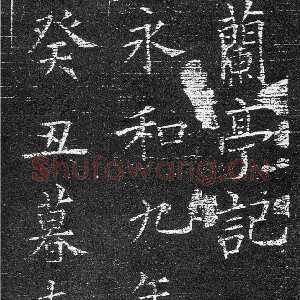 蘭亭記
永和九年
癸丑暮
Shufawang.CN